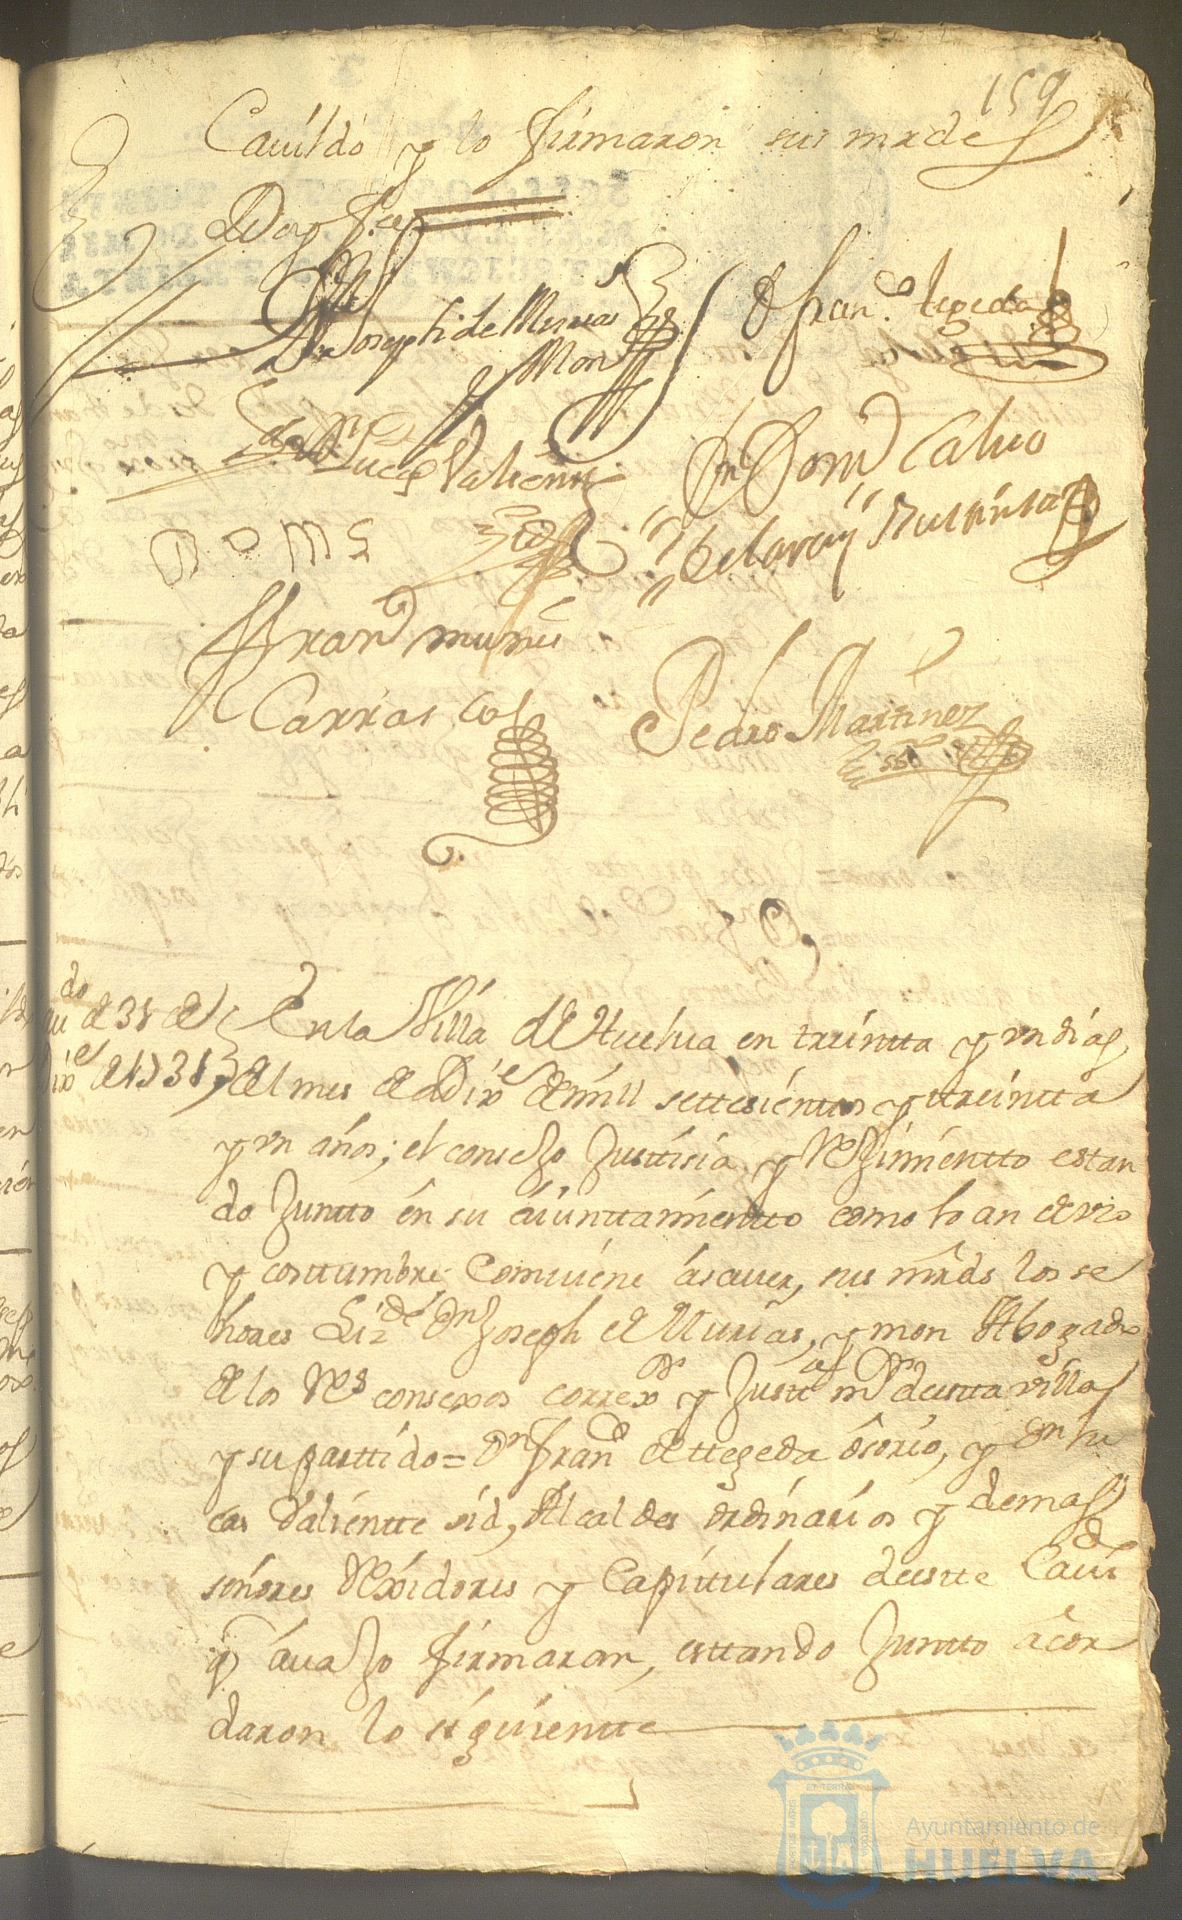 159
Cauildo y lo firmaron sus mrdes
Doy fee
Joseph de Murias
y Mon
Fran.co tegeda
Dn Lucas Valiente
Sid
Dn Domo Caluo
Fran.co muñis
Carrasco
Pedro Martinez
ssno
do
de 31 de
e de 1731
En la Villa de Huelua en treintta y vn dias
del mes de Dize de mill settesienttos y treintta
y vn años; el consejo Justtisia y Rejimientto estan
do Juntto en su aiunttamientto como lo an de vso
y costtumbre Comuiene a sauer, sus mrds los se
ñores Lizdo Dn Joseph de Murias, y mon Abogado
de los Rs consexos correxor y Justta mor destta villa
y su parttido = Dn Franco de ttegeda osorio, y Dn lu
cas Valientte sid, Alcaldes ordinarios y demas
señores Rexidores y Capittulares destte Cauido
q auajo firmaran, esttando Juntto acor
daron lo siguientte
Ayuntamiento de
HUELVA